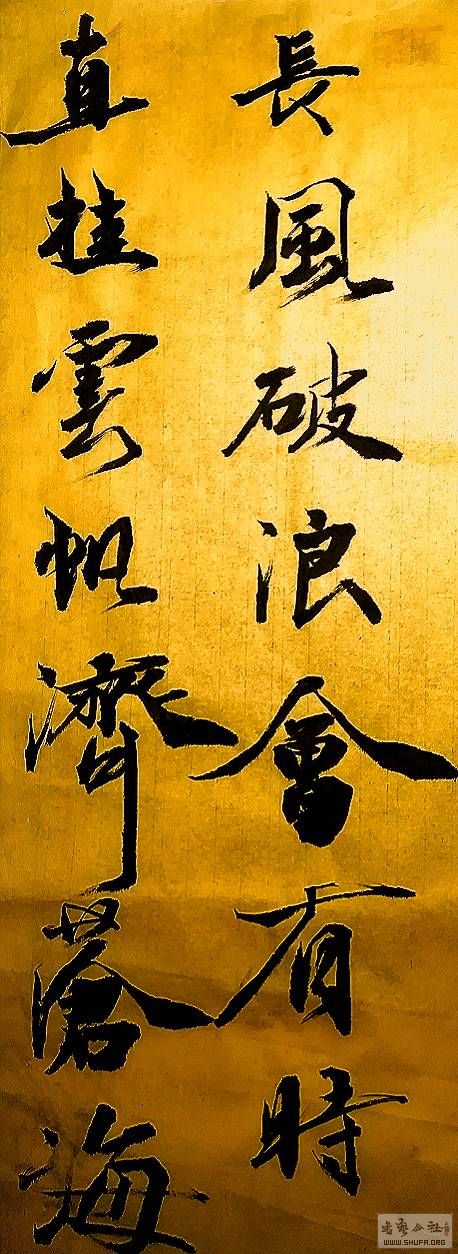 長風破浪會有時
直挂雲帆濟蒼海
WWW.SHUFA.ORG